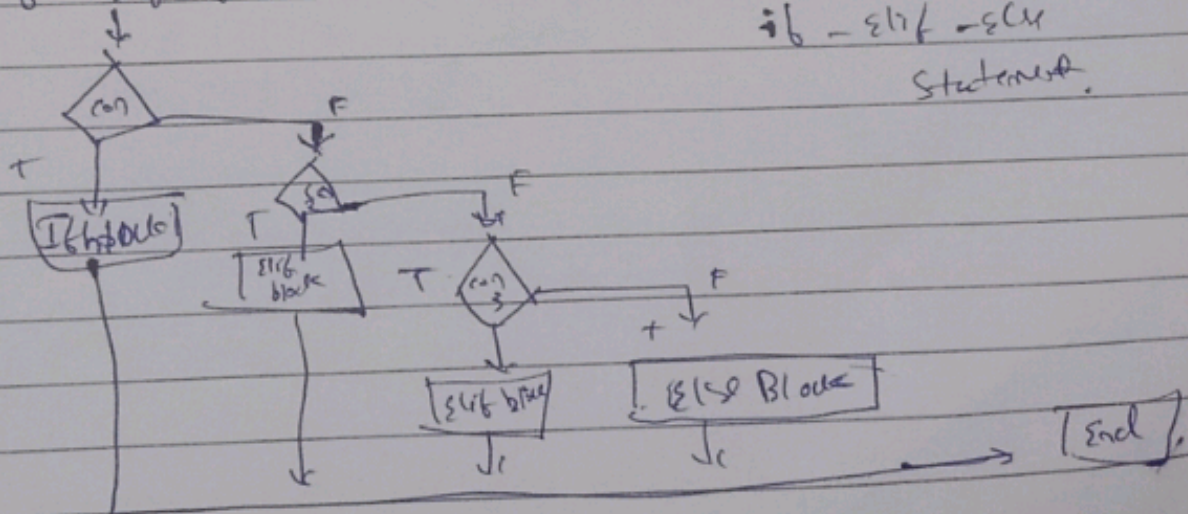 if - Elif - Else
Statement.
con
F
T
F
If block
T
Elif
block
T
con
3
F
Elif block
Else Block
End